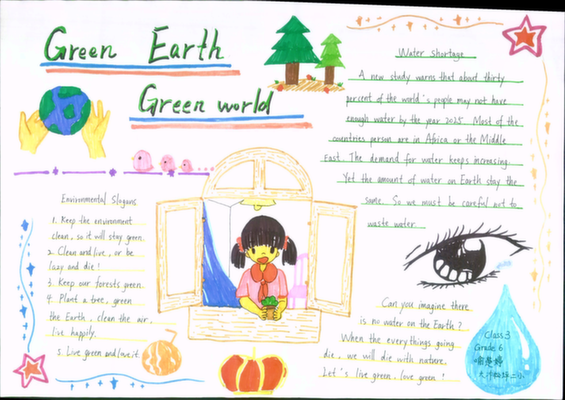 Green Earth
Green world
Environmental Slogans
1. Keep the environment
clean, so it will stay green.
2. Clean and live, or be
lazy and die!
3. Keep our forests green.
4. Plant a tree, green
the Earth, clean the air,
live happily.
5. Live green and love it.
Water Shortage
A new study warns that about thirty
percent of the world's people may not have
enough water by the year 2025. Most of the
countries person are in Africa or the Middle
East. The demand for water keeps increasing.
Yet the amount of water on Earth stay the
same. So we must be careful not to
waste water.
Can you imagine there
is no water on the Earth?
When the everythings going
die, we will die with nature.
Let's live green, love green!
Class 3
Grade 6